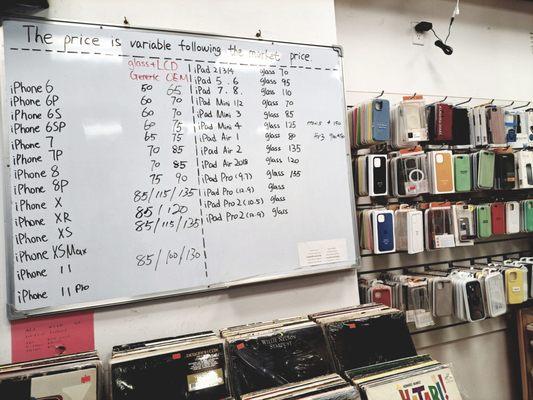 The price is variable following the market price.
glass+LCD
Generic OEM
iPhone 6 50 65
iPhone 6P 60 70
iPhone 6S 60 70
iPhone 6SP 60 75
iPhone 7 65 75
iPhone 7P 70 85
iPhone 8 70 85
iPhone 8P 75 90
iPhone X 85/115/135
iPhone XR 85/120
iPhone XS 85/115/135
iPhone XSMax
iPhone 11 85/100/130
iPhone 11 Pro
iPad 2/3/4 glass 70
iPad 5.6. glass 95
iPad 7.8. glass 110
iPad Mini 1/2 glass 70
iPad Mini 3 glass 85
iPad Mini 4 glass 125
iPad Air 1 glass 80
iPad Air 2 glass 135
iPad Air 2018 glass 120
iPad Pro (9.7) glass 155
iPad Pro (12.9) glass
iPad Pro 2 (10.5) glass
iPad Pro 2 (12.9) glass
WILLIE NELSON
STARDUST